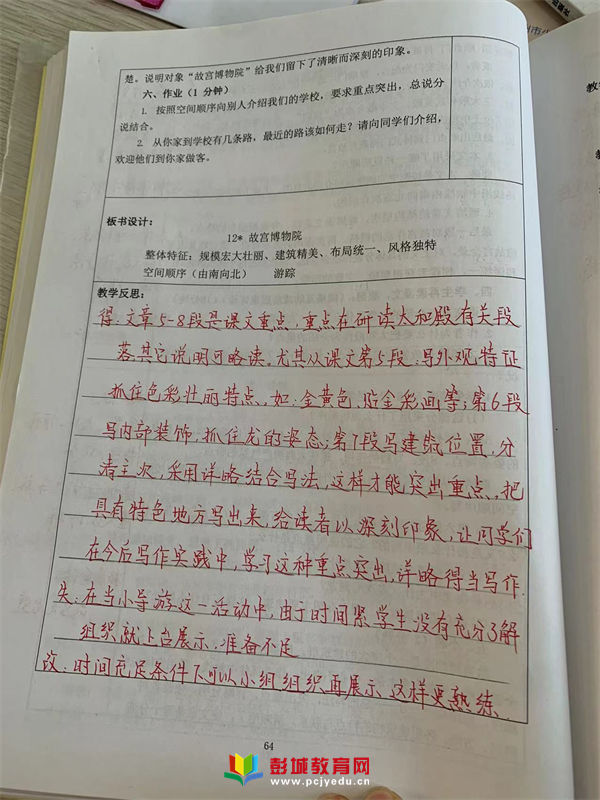 楚。说明对象“故宫博物院”给我们留下了清晰而深刻的印象。
六、作业（1 分钟）
1. 按照空间顺序向别人介绍我们的学校，要求重点突出，总说分
说结合。
2. 从你家到学校有几条路，最近的路该如何走？请向同学们介绍，
欢迎他们到你家做客。
板书设计：
12* 故宫博物院
整体特征：规模宏大壮丽、建筑精美、布局统一、风格独特
空间顺序（由南向北） 游踪
教学反思：
得：文章5-8段是课文重点，重点在研读太和殿有关段
落其它说明可略读。尤其从课文第5段：写外观，特征
抓住色彩壮丽特点、如：金黄色、贴金彩画等；第6段
写内部装饰，抓住龙的姿态；第7段写建筑位置，分
清主次，采用详略结合写法，这样才能突出重点，把
具有特色地方写出来，给读者以深刻印象，让同学们
在今后写作实践中，学习这种重点突出，详略得当写作．
失：在当小导游这一活动中，由于时间紧学生没有充分了解
组织就上台展示，准备不足
改：时间充足条件下可以小组组织再展示，这样更熟练．
64
彭城教育网
www.pcjyedu.cn